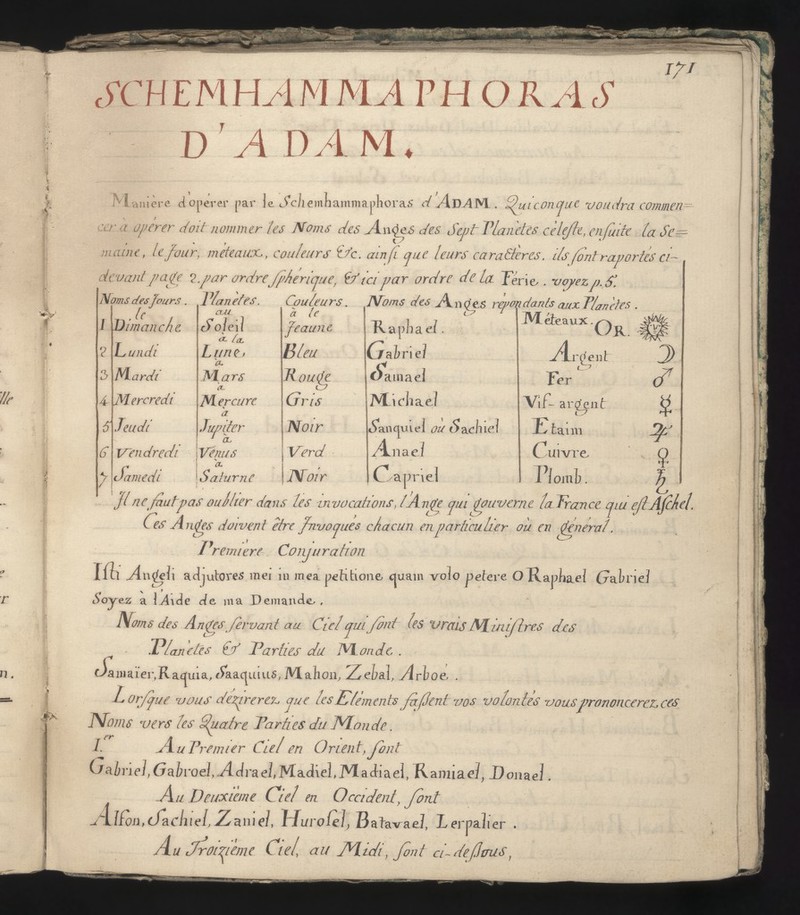 171
SCHEMHAMMAPHORAS
D'ADAM.
Maniere d'opérer par le Schemhammaphoras d'ADAM. Quiconque voudra commen=
cer à opérer doit nommer les Noms des Anges des Sept Planètes céleste, ensuite la Se=
maine, le Jour, méteaux, couleurs &c. ainsi que leurs caractères. ils sont raportés ci-
devant page 2. par ordre sphérique, & ici par ordre de la Férie. voyez p. 5.
Noms des Jours. Planètes. Couleurs. Noms des Anges répondants aux Planètes.
le au à le Méteaux.
1 Dimanche Soleil Jeaune Raphael. OR. ☉
à la
2 Lundi Lune Bleu Gabriel Argent ☽
à
3 Mardi Mars Rouge Samael Fer ♂
à
4 Mercredi Mercure Gris Michael Vif-argent ☿
à
5 Jeudi Jupiter Noir Sanquiel où Sachiel Etaim ♃
à
6 Vendredi Vénus Verd Anael Cuivre ♀
à
7 Samedi Saturne Noir Capriel Plomb. ♄
Il ne faut pas oublier dans les invocations, l'Ange qui gouverne la France qui est Aschel.
Ces Anges doivent être Invoqués chacun en particulier où en général.
Premiere Conjuration
Isti Angeli adjutores mei in mea petitione quam volo petere O Raphael Gabriel
Soyez à l'Aide de ma Demande.
Noms des Anges servant au Ciel qui sont les vrais Ministres des
Planètes & Parties du Monde.
Samaïer, Raquia, Saaquius, Mahon, Zebal, Arboe.
Lorsque vous dézirerez que les Eléments fassent vos volontés vous prononcerez ces
Noms vers les Quatre Parties du Monde.
I.er Au Premier Ciel en Orient, sont
Gabriel, Gabroel, Adrael, Madiel, Madiael, Ramiael, Donael.
Au Deuxième Ciel en Occident, sont
Alfon, Sachiel, Zaniel, Hurosel, Batavael, Lerpalier.
Au Troizième Ciel, au Midi, sont ci-dessous,